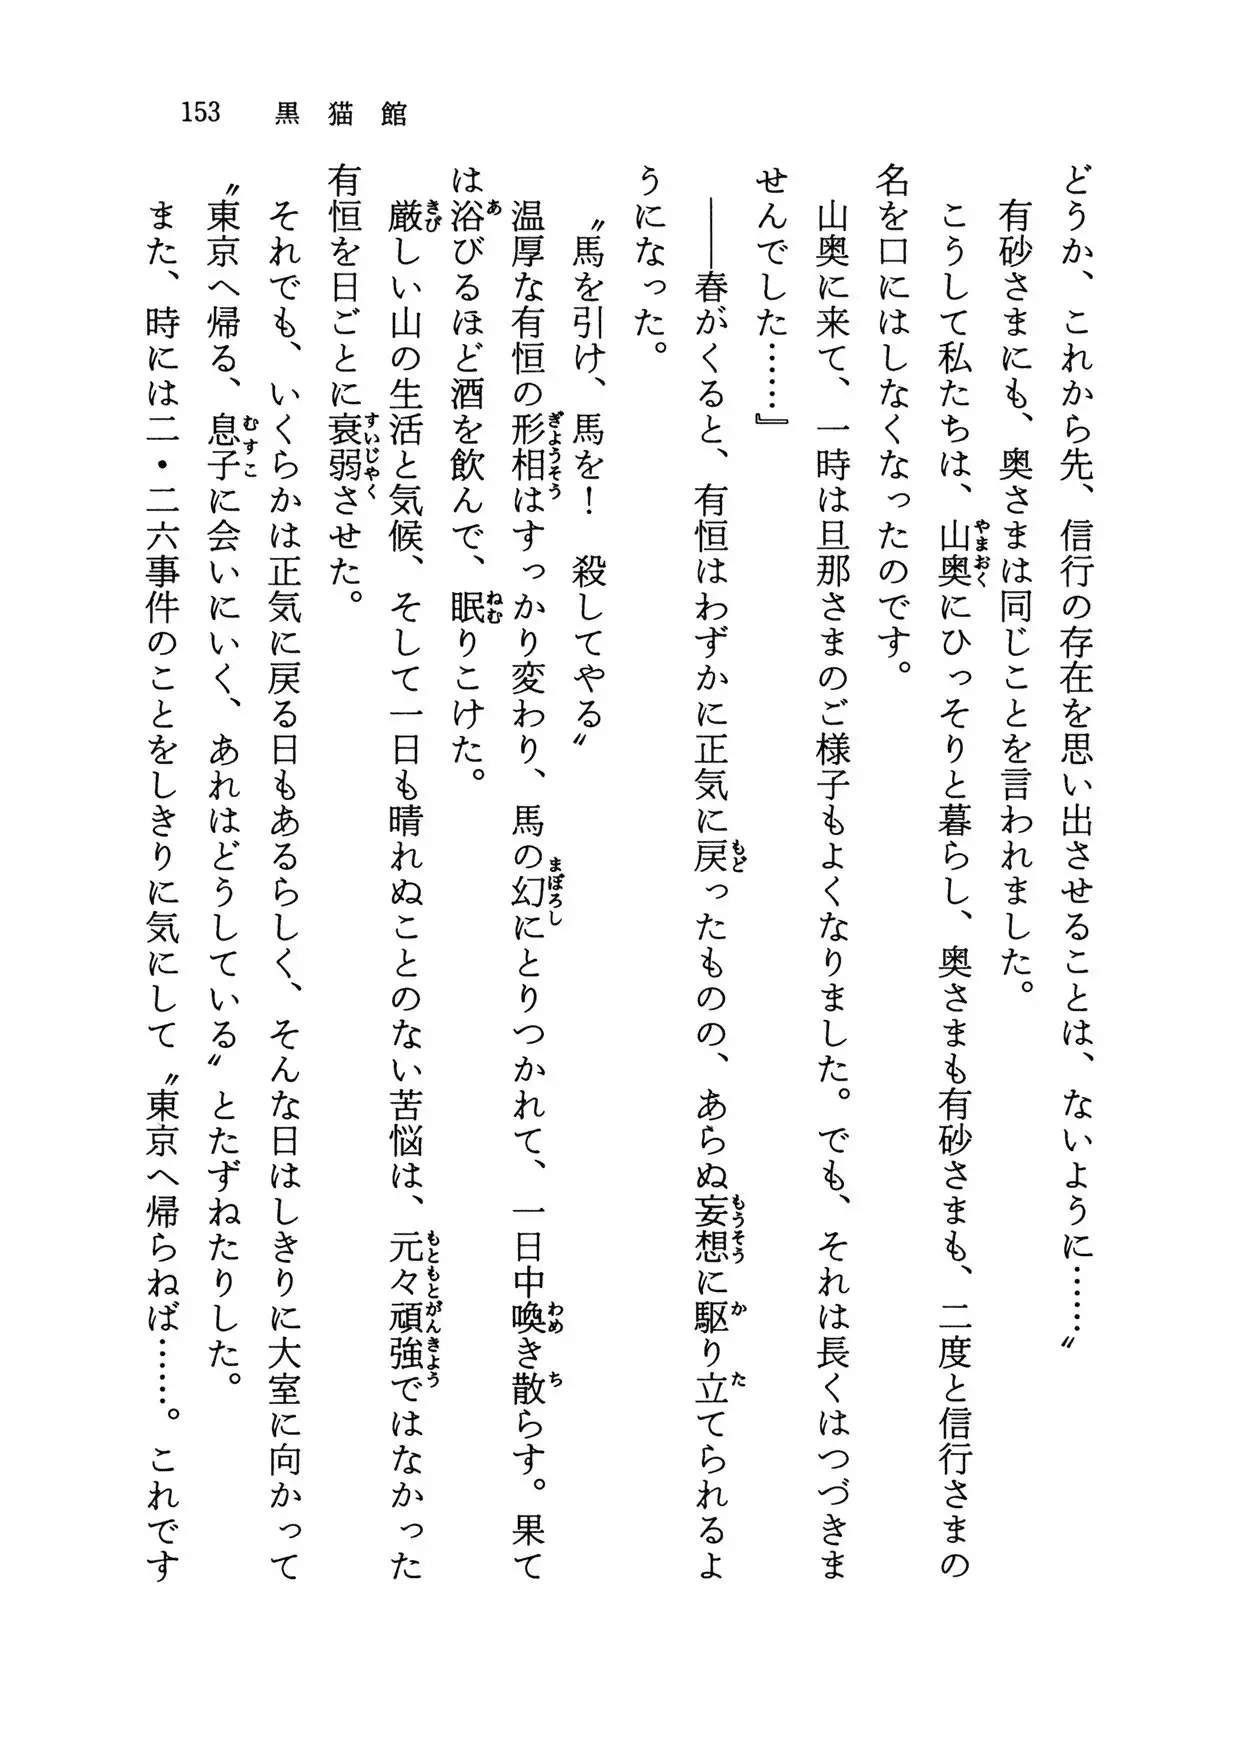 153　黒猫館
どうか、これから先、信行の存在を思い出させることは、ないように……〟
有砂さまにも、奥さまは同じことを言われました。
こうして私たちは、山奥にひっそりと暮らし、奥さまも有砂さまも、二度と信行さまの
名を口にはしなくなったのです。
山奥に来て、一時は旦那さまのご様子もよくなりました。でも、それは長くはつづきま
せんでした……』
――春がくると、有恒はわずかに正気に戻ったものの、あらぬ妄想に駆り立てられるよ
うになった。
〝馬を引け、馬を！　殺してやる〟
温厚な有恒の形相はすっかり変わり、馬の幻にとりつかれて、一日中喚き散らす。果て
は浴びるほど酒を飲んで、眠りこけた。
厳しい山の生活と気候、そして一日も晴れぬことのない苦悩は、元々頑強ではなかった
有恒を日ごとに衰弱させた。
それでも、いくらかは正気に戻る日もあるらしく、そんな日はしきりに大室に向かって
〝東京へ帰る、息子に会いにいく、あれはどうしている〟とたずねたりした。
また、時には二・二六事件のことをしきりに気にして〝東京へ帰らねば……。これです